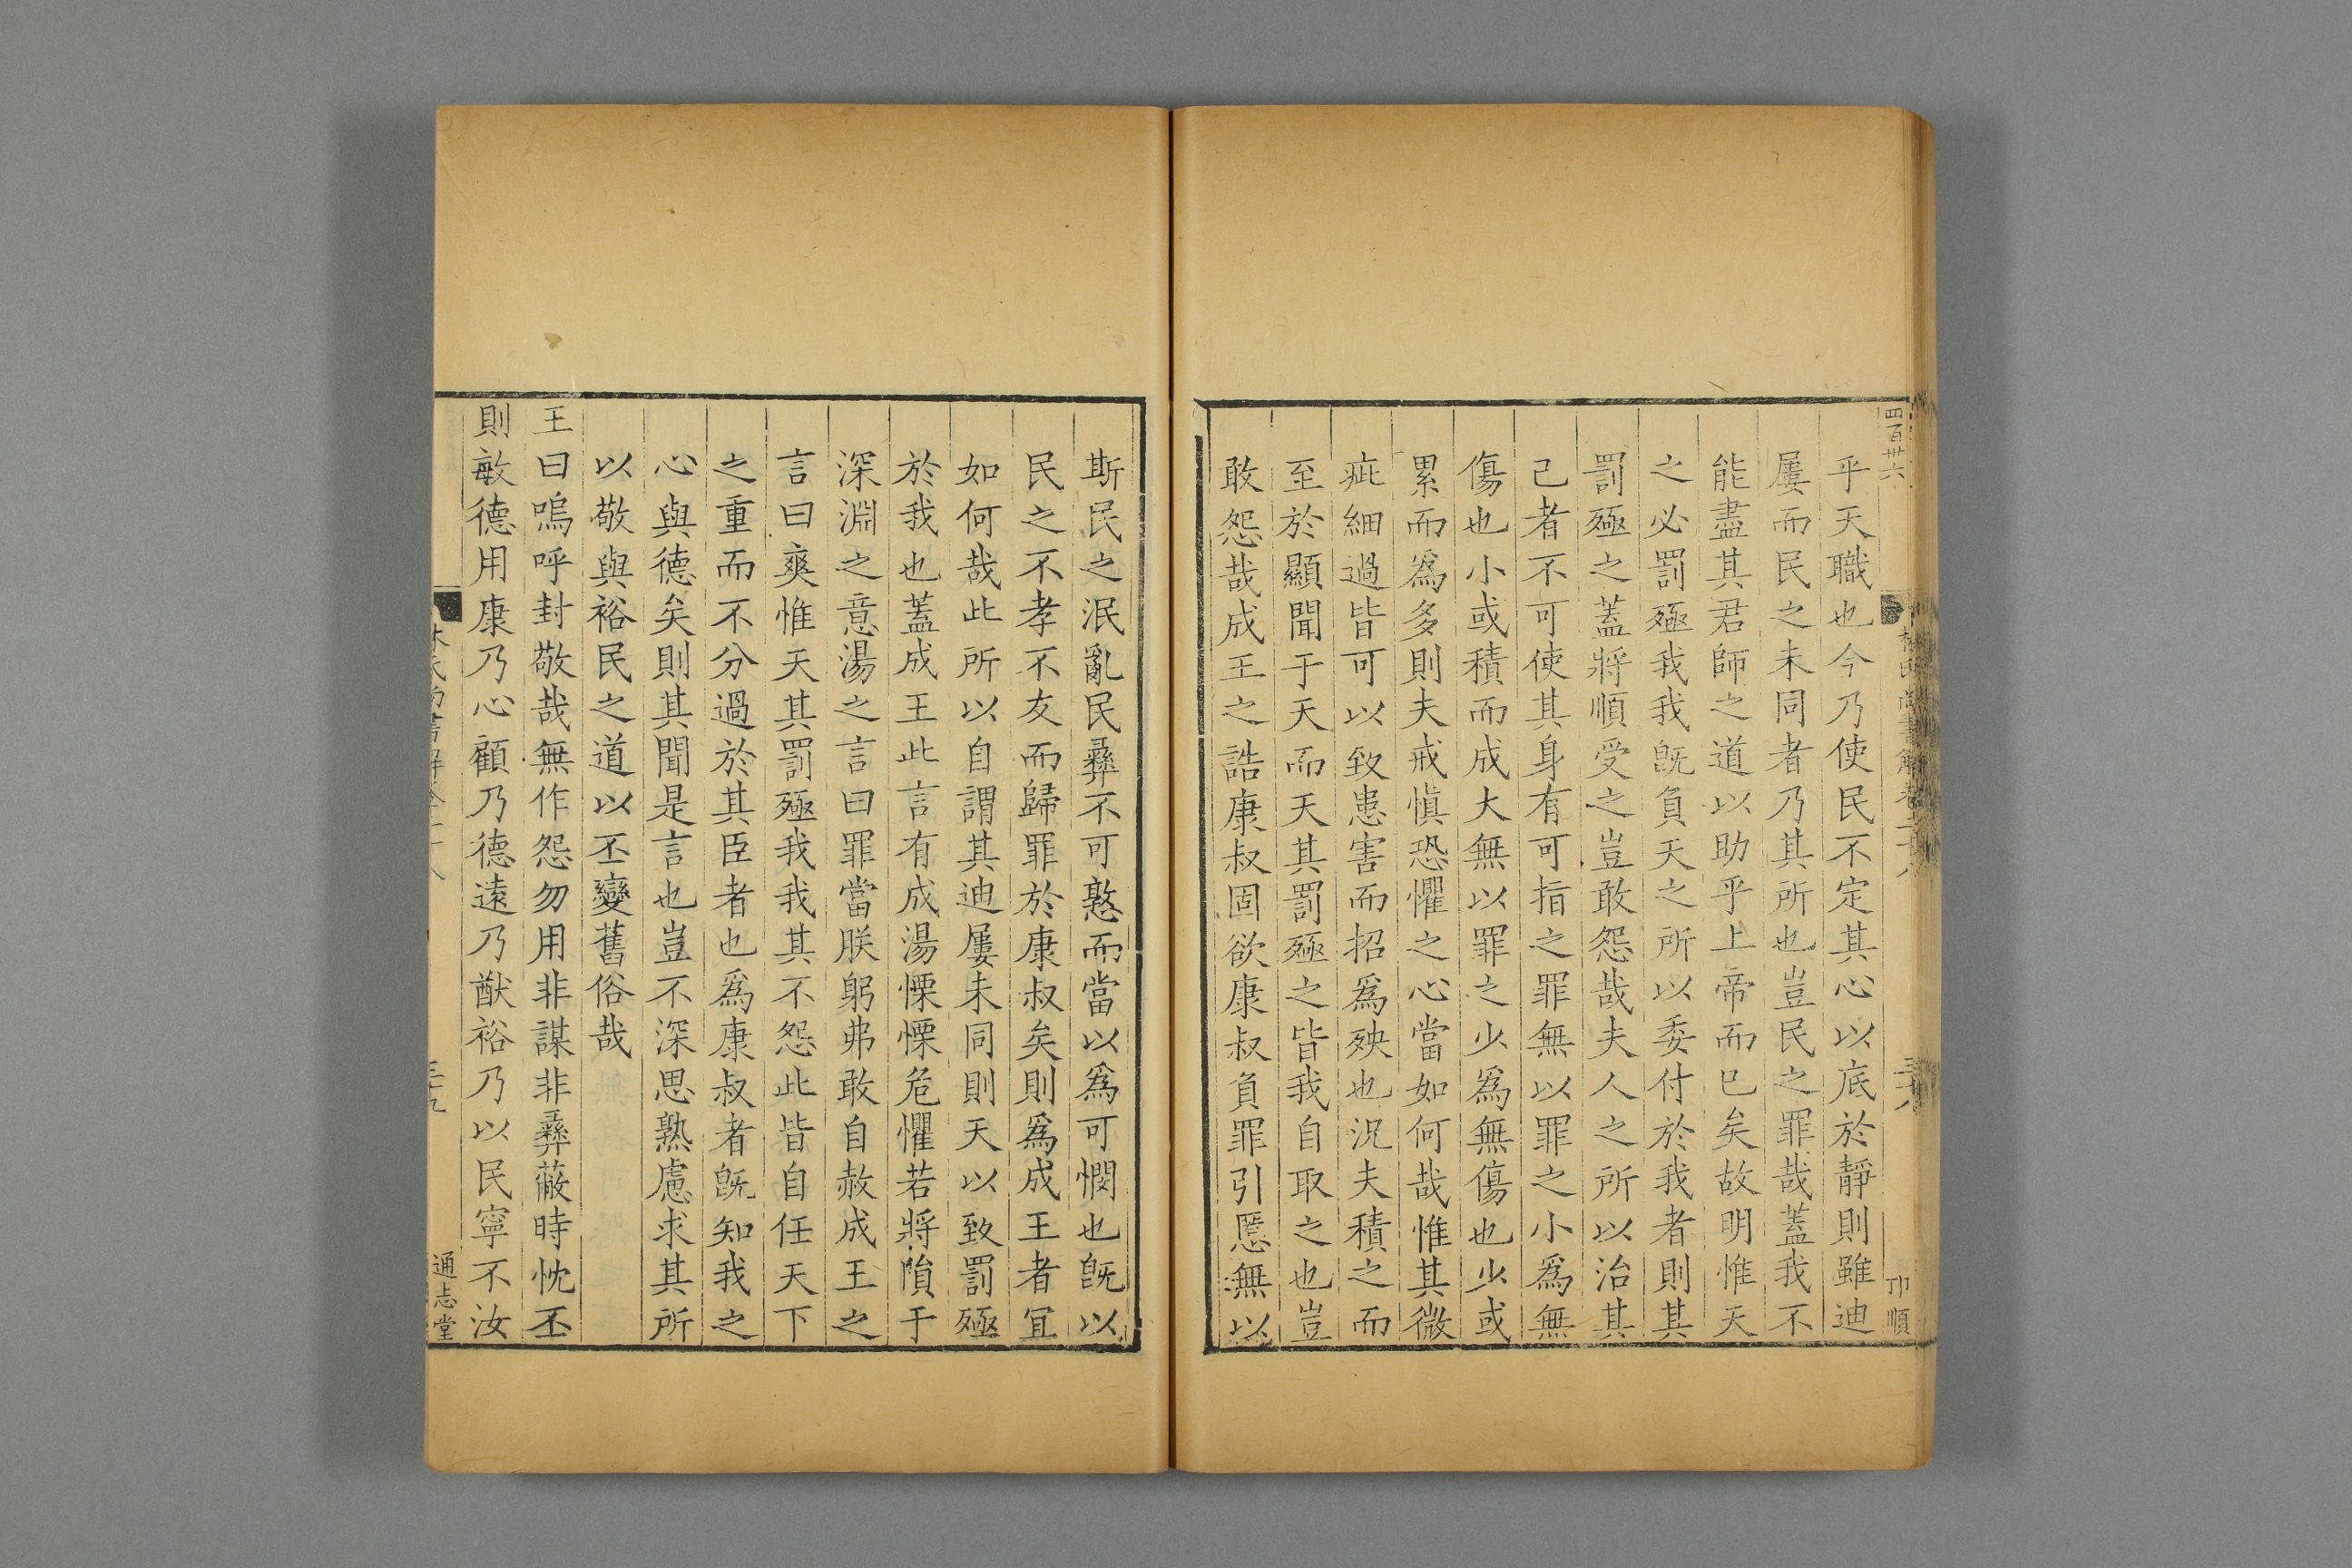 四百卅六
林氏尚書解卷二十八
三十八
卭順
乎天職也今乃使民不定其心以底於靜則雖迪
屢而民之未同者乃其所也豈民之罪哉蓋我不
能盡其君師之道以助乎上帝而已矣故明惟天
之必罰殛我我旣負天之所以委付於我者則其
罰殛之蓋將順受之豈敢怨哉夫人之所以治其
己者不可使其身有可指之罪無以罪之小爲無
傷也小或積而成大無以罪之少爲無傷也少或
累而爲多則夫戒愼恐懼之心當如何哉惟其微
疵細過皆可以致患害而招爲殃也況夫積之而
至於顯聞于天而天其罰殛之皆我自取之也豈
敢怨哉成王之誥康叔固欲康叔負罪引慝無以
斯民之泯亂民彝不可憝而當以爲可憫也旣以
民之不孝不友而歸罪於康叔矣則爲成王者宜
如何哉此所以自謂其迪屢未同則天以致罰殛
於我也蓋成王此言有成湯慄慄危懼若將隕于
深淵之意湯之言曰罪當朕躬弗敢自赦成王之
言曰爽惟天其罰殛我我其不怨此皆自任天下
之重而不分過於其臣者也爲康叔者旣知我之
心與德矣則其聞是言也豈不深思熟慮求其所
以敬與裕民之道以丕變舊俗哉
王曰嗚呼封敬哉無作怨勿用非謀非彝蔽時忱丕
則敏德用康乃心顧乃德遠乃猷裕乃以民寧不汝
林氏尚書解卷二十八
三十九
通志堂